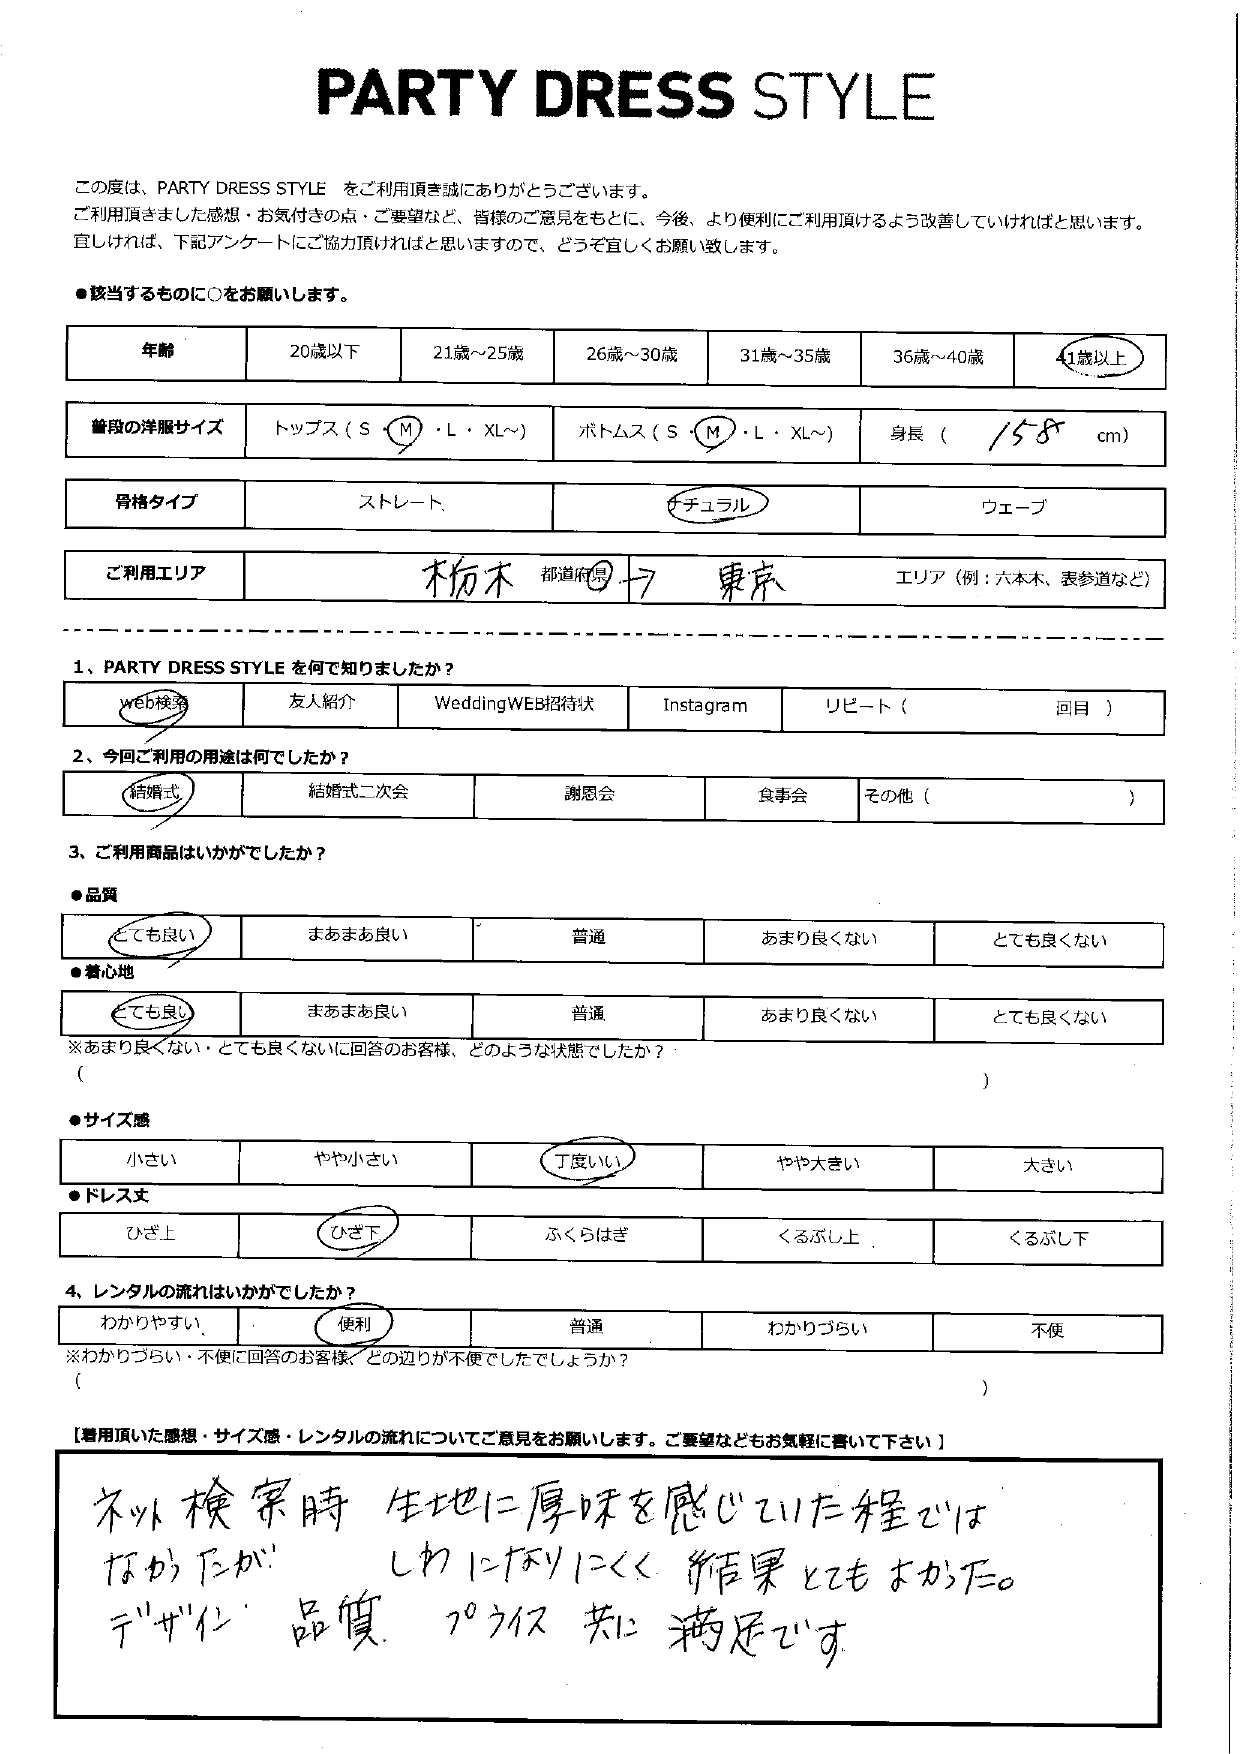 PARTY DRESS STYLE
この度は、PARTY DRESS STYLE をご利用頂き誠にありがとうございます。
ご利用頂きました感想・お気付きの点・ご要望など、皆様のご意見をもとに、今後、より便利にご利用頂けるよう改善していければと思います。
宜しければ、下記アンケートにご協力頂ければと思いますので、どうぞ宜しくお願い致します。
●該当するものに○をお願いします。
年齢 20歳以下 21歳～25歳 26歳～30歳 31歳～35歳 36歳～40歳 41歳以上
普段の洋服サイズ トップス（ S ・ M ・ L ・ XL～） ボトムス（ S ・ M ・ L ・ XL～） 身長 （ 158 cm）
骨格タイプ ストレート ナチュラル ウェーブ
ご利用エリア 栃木 都道府県 → 東京 エリア（例：六本木、表参道など）
1、PARTY DRESS STYLE を何で知りましたか？
web検索 友人紹介 WeddingWEB招待状 Instagram リピート（ 回目 ）
2、今回ご利用の用途は何でしたか？
結婚式 結婚式二次会 謝恩会 食事会 その他（ ）
3、ご利用商品はいかがでしたか？
●品質
とても良い まあまあ良い 普通 あまり良くない とても良くない
●着心地
とても良い まあまあ良い 普通 あまり良くない とても良くない
※あまり良くない・とても良くないに回答のお客様、どのような状態でしたか？
（ ）
●サイズ感
小さい やや小さい 丁度いい やや大きい 大きい
●ドレス丈
ひざ上 ひざ下 ふくらはぎ くるぶし上 くるぶし下
4、レンタルの流れはいかがでしたか？
わかりやすい 便利 普通 わかりづらい 不便
※わかりづらい・不便に回答のお客様、どの辺りが不便でしたでしょうか？
（ ）
【着用頂いた感想・サイズ感・レンタルの流れについてご意見をお願いします。ご要望などもお気軽に書いて下さい】
ネット検索時 生地に厚味を感じていた程では
なかったが しわになりにくく 結果とてもよかった。
デザイン 品質 プライス 共に 満足です